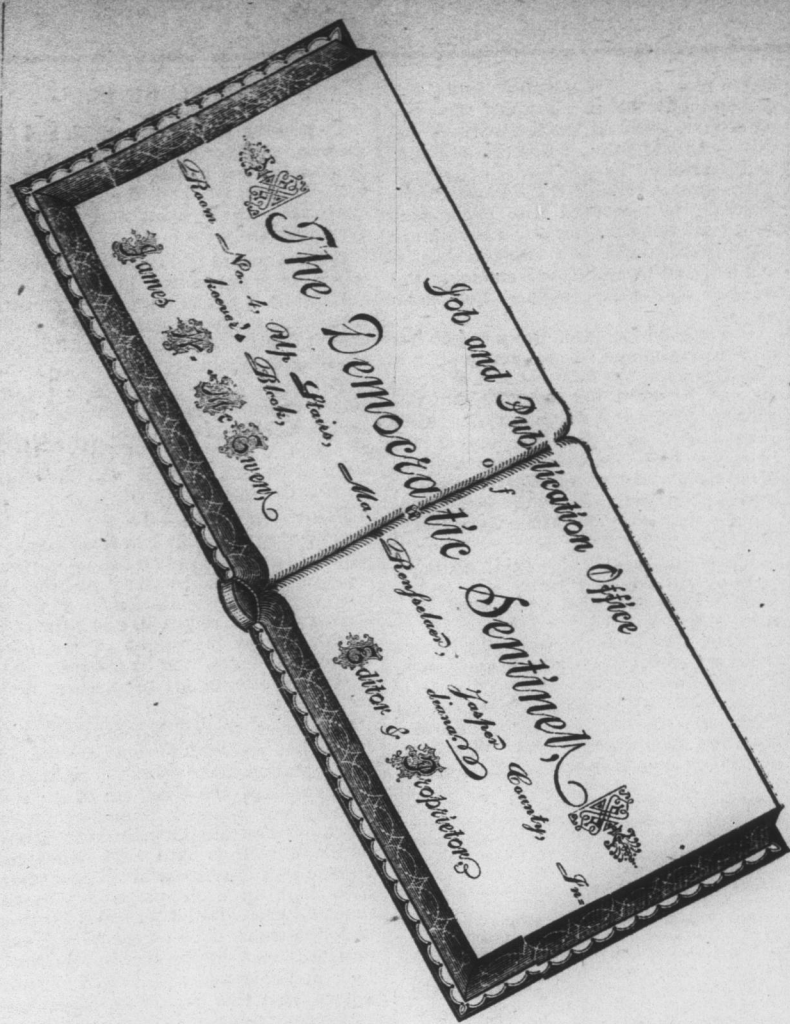 Job and Publication Office
of
The Democratic Sentinel,
Room No. 4, Up Stairs, Ma-
koover's Block,
Rensselaer, Jasper County, In-
diana
James W. McEwen,
Editor & Proprietor